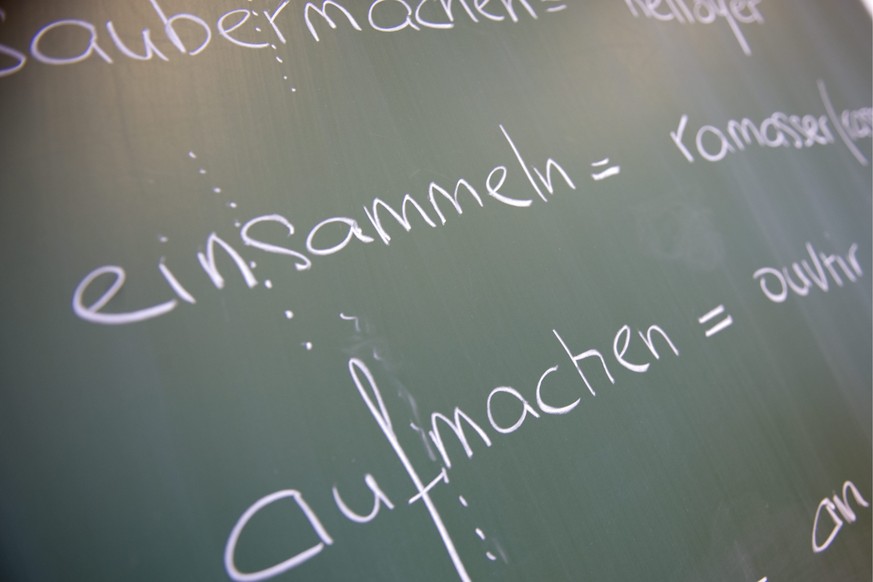 saubermachen = nettoyer
einsammeln = ramasser/
aufmachen = ouvrir
an